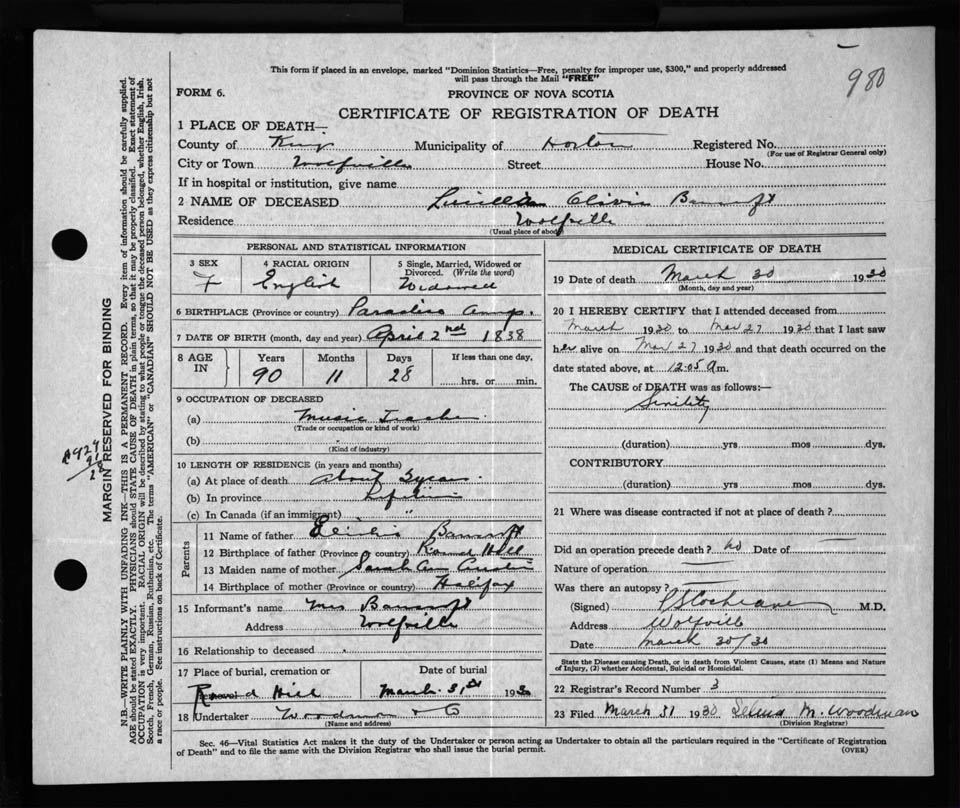 980
This form if placed in an envelope, marked "Dominion Statistics—Free, penalty for improper use, $300," and properly addressed
will pass through the Mail "FREE"
FORM 6. PROVINCE OF NOVA SCOTIA
CERTIFICATE OF REGISTRATION OF DEATH
1 PLACE OF DEATH—
County of Kings Municipality of Horton Registered No.
(For use of Registrar General only)
City or Town Wolfville Street House No.
If in hospital or institution, give name
2 NAME OF DECEASED Olivia Bancroft
Residence Wolfville
(Usual place of abode)
PERSONAL AND STATISTICAL INFORMATION
3 SEX 4 RACIAL ORIGIN 5 Single, Married, Widowed or
Divorced. (Write the word)
F English Widowed
6 BIRTHPLACE (Province or country) Paradise Annap.
7 DATE OF BIRTH (month, day and year) April 2nd 1838
8 AGE IN Years Months Days If less than one day,
90 11 28 hrs. or min.
9 OCCUPATION OF DECEASED
(a) Music Teacher
(Trade or occupation or kind of work)
(b)
(Kind of industry)
10 LENGTH OF RESIDENCE (in years and months)
(a) At place of death about years
(b) In province Lifetime
(c) In Canada (if an immigrant) "
Parents
11 Name of father Bancroft
12 Birthplace of father (Province or country) Round Hill
13 Maiden name of mother Sarah Ann
14 Birthplace of mother (Province or country) Halifax
15 Informant's name Mrs Bancroft
Address Wolfville
16 Relationship to deceased
17 Place of burial, cremation or Date of burial
Round Hill March 31st 1930
18 Undertaker Woodman & Co
(Name and address)
MEDICAL CERTIFICATE OF DEATH
19 Date of death March 30 1930
(Month, day and year)
20 I HEREBY CERTIFY that I attended deceased from
March 1930 to Mar 27 1930 that I last saw
her alive on Mar 27 1930 and that death occurred on the
date stated above, at 12.05 A m.
The CAUSE of DEATH was as follows:—
Senility
(duration) yrs. mos. dys.
CONTRIBUTORY
(duration) yrs. mos. dys.
21 Where was disease contracted if not at place of death?
Did an operation precede death? no Date of
Nature of operation
Was there an autopsy?
(Signed) Cochrane M.D.
Address Wolfville
Date March 30/30
State the Disease causing Death, or in death from Violent Causes, state (1) Means and Nature
of Injury, (2) whether Accidental, Suicidal or Homicidal.
22 Registrar's Record Number 3
23 Filed March 31 1930 Selena M. Woodman
(Division Registrar)
Sec. 46—Vital Statistics Act makes it the duty of the Undertaker or person acting as Undertaker to obtain all the particulars required in the "Certificate of Registration
of Death" and to file the same with the Division Registrar who shall issue the burial permit. (OVER)
MARGIN RESERVED FOR BINDING
N.B.—WRITE PLAINLY WITH UNFADING INK—THIS IS A PERMANENT RECORD. Every item of information should be carefully supplied.
AGE should be stated EXACTLY. PHYSICIANS should STATE CAUSE OF DEATH in plain terms, so that it may be properly classified. Exact statement of
OCCUPATION is very important. RACIAL ORIGIN will be described by stating to what people or tongue the deceased person belonged, whether English, Irish,
Scotch, French, German, Russian, Ruthenian, etc. The terms "AMERICAN" or "CANADIAN" SHOULD NOT BE USED as they express citizenship but not
a race or people. See instructions on back of Certificate.